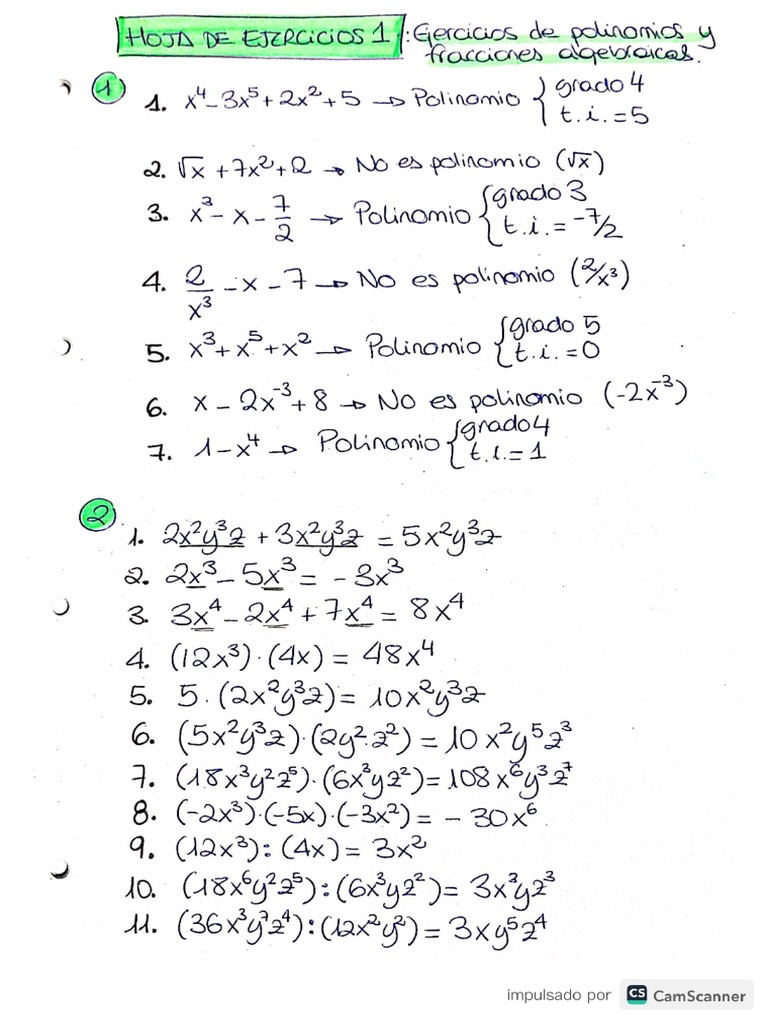 HOJA DE EJERCICIOS 1: Ejercicios de polinomios y
fracciones algebraicas.
① 1. x⁴ - 3x⁵ + 2x² + 5 → Polinomio { grado 4
t.i. = 5
2. √x + 7x² + 2 → No es polinomio (√x)
3. x³ - x - 7/2 → Polinomio { grado 3
t.i. = -7/2
4. 2/x³ - x - 7 → No es polinomio (2/x³)
5. x³ + x⁵ + x² → Polinomio { grado 5
t.i. = 0
6. x - 2x⁻³ + 8 → No es polinomio (-2x⁻³)
7. 1 - x⁴ → Polinomio { grado 4
t.i. = 1
②
1. 2x²y³z + 3x²y³z = 5x²y³z
2. 2x³ - 5x³ = -3x³
3. 3x⁴ - 2x⁴ + 7x⁴ = 8x⁴
4. (12x³)·(4x) = 48x⁴
5. 5·(2x²y³z) = 10x²y³z
6. (5x²y³z)·(2y²·z²) = 10x²y⁵z³
7. (18x³y²z⁵)·(6x³yz²) = 108x⁶y³z⁷
8. (-2x³)·(-5x)·(-3x²) = -30x⁶
9. (12x³):(4x) = 3x²
10. (18x⁶y²z⁵):(6x³yz²) = 3x³yz³
11. (36x³y⁷z⁴):(12x²y²) = 3xy⁵z⁴
impulsado por CS CamScanner